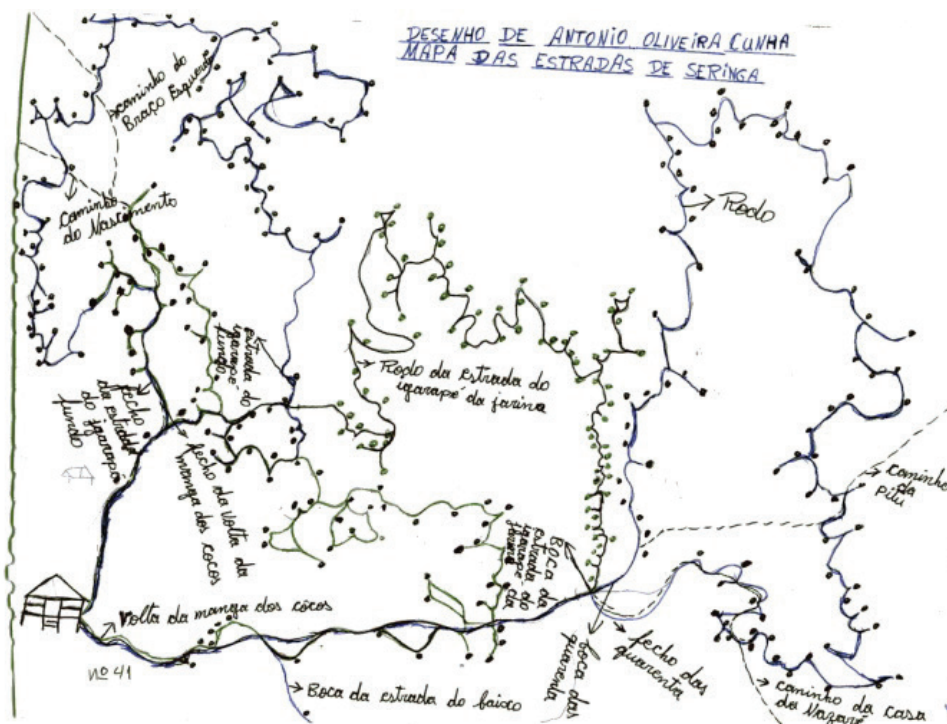 DESENHO DE ANTONIO OLIVEIRA CUNHA
MAPA DAS ESTRADAS DE SERINGA
caminho do
Braço Esquerdo
caminho
do Nascimento
Rodo
estrada
igarapé do
fundo
Rodo da estrada do
igarapé da farina
fecho
da estrada
do igarapé
fundo
fecho da volta da
manga dos cocos
caminho
da
Pitu
BOCA da
estrada do
igarapé da
farina
Volta da manga dos côcos
fecho das
quarenta
boca das
quarenta
Nº 41
Boca da estrada do baixo
caminho da casa
da Nazaré